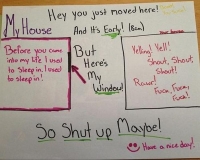 Hey you just moved here!
My House
And It's Early! (8am)
Before you came
into my life I used
to sleep in. I used
to sleep in!
But
Here's
My
Window!
Yelling! Yell!
Shout, Shout,
Shout!
Rawr!
Fuck, Fuck,
Fuck!
So Shut up Maybe!
Have a nice day!